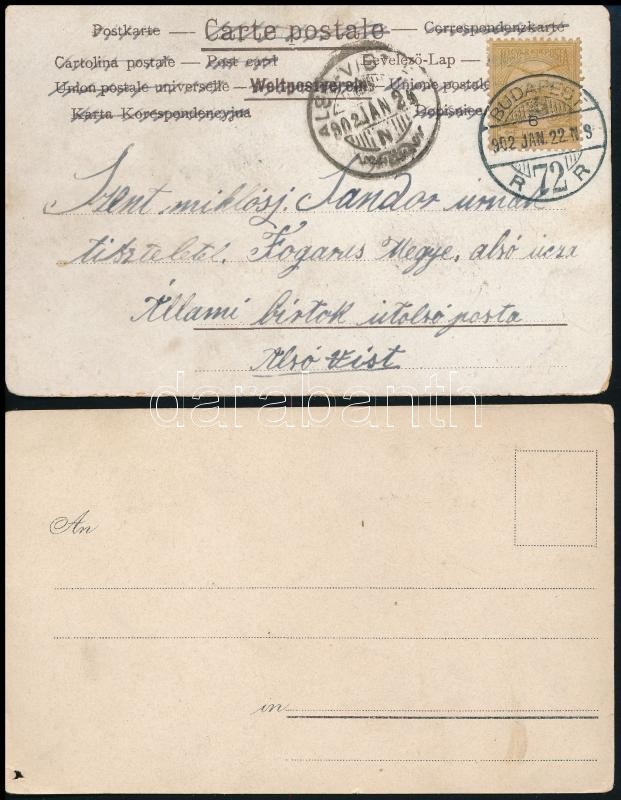 Postkarte — Carte postale — Correspondenzkarte
Cartolina postale — Post card — Levelező-Lap —
Union postale universelle — Weltpostverein — Unione postale
Karta Korespondencyjna — Dopisnice
ALSÓ-VIS
902 JAN 24
N
BUDAPEST
6
902 JAN. 22. N. 9
R 72 R
Szent miklósj. Sandor úrnak
tisztelet. Fogaras Megye, alsó ucza
Állami birtok utolsó posta
Alsó Vist
darabanth
An
in